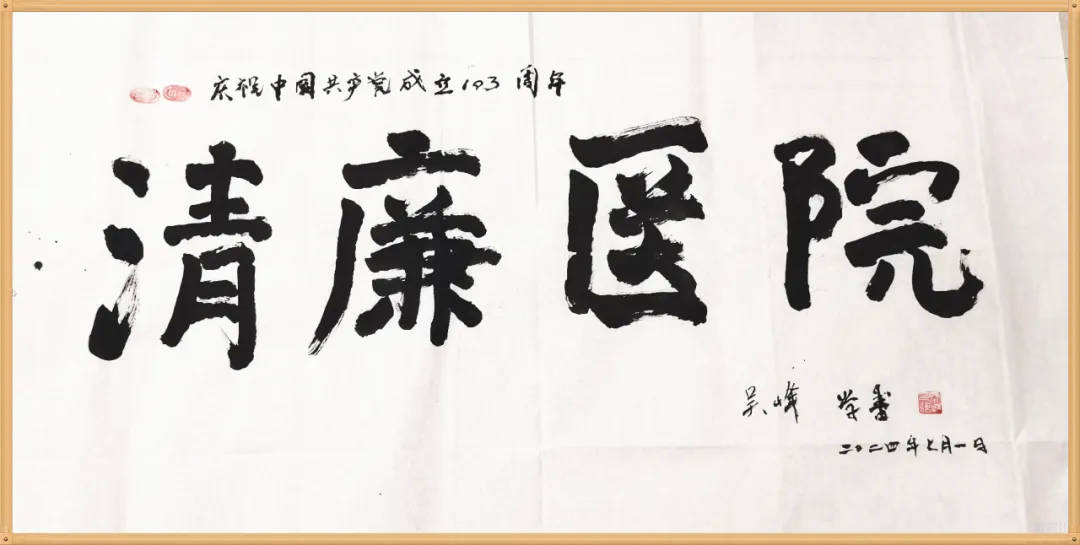 庆祝中国共产党成立103周年
清廉医院
吴峰 学书
二〇二四年七月一日